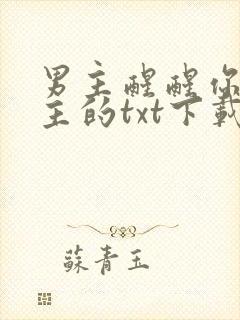 男主醒醒你
主的txt下載
蘇青玉